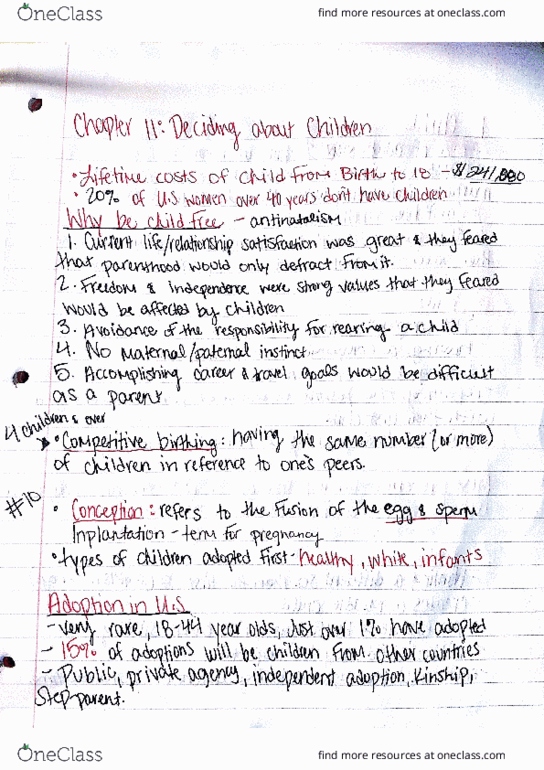 OneClass
find more resources at oneclass.com
Chapter 11: Deciding about Children
• Lifetime costs of child from Birth to 18 - $241,080
• 20% of U.S women over 40 years don't have children
Why be child free - antinatalism
1. Current life/relationship satisfaction was great & they feared
that parenthood would only defract from it.
2. Freedom & Independence were strong values that they feared
would be affected by children
3. Avoidance of the responsibility for rearing a child
4. No maternal/paternal instinct
5. Accomplishing career & travel goals would be difficult
as a parent
4 children & over
• Competitive birthing: having the same number (or more)
of children in reference to one's peers.
#10
• Conception: refers to the fusion of the egg & sperm
Inplantation - term for pregnancy
• types of children adopted first - healthy, white, infants
Adoption in U.S
- very rare, 18-44 year olds, Just over 1% have adopted
- 15% of adoptions will be children from other countries
- Public, private agency, independent adoption, Kinship,
Step parent.
OneClass
find more resources at oneclass.com